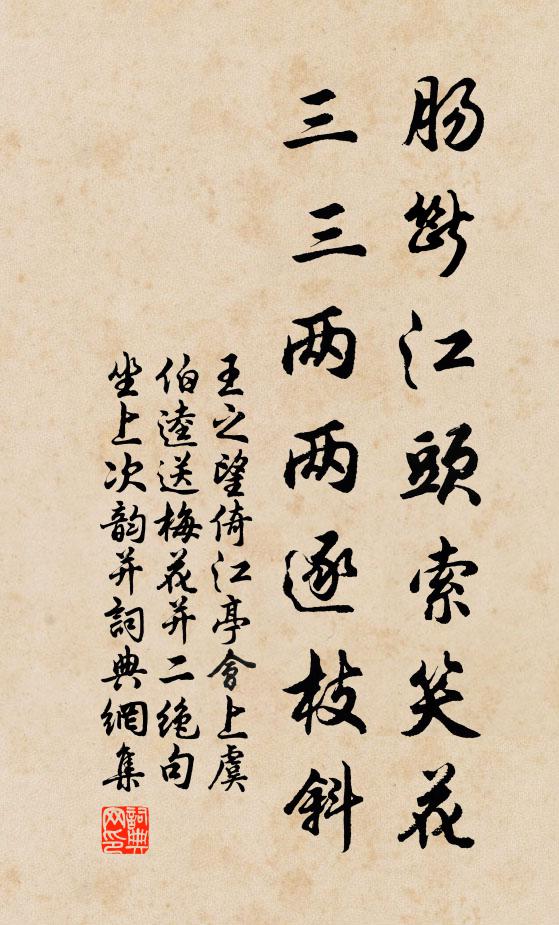 肠斷江頭索笑花
三三两两逐枝斜
王之望倚江亭會上虞
伯逵送梅花并二絶句
坐上次韵并詞典網集
詞典网印